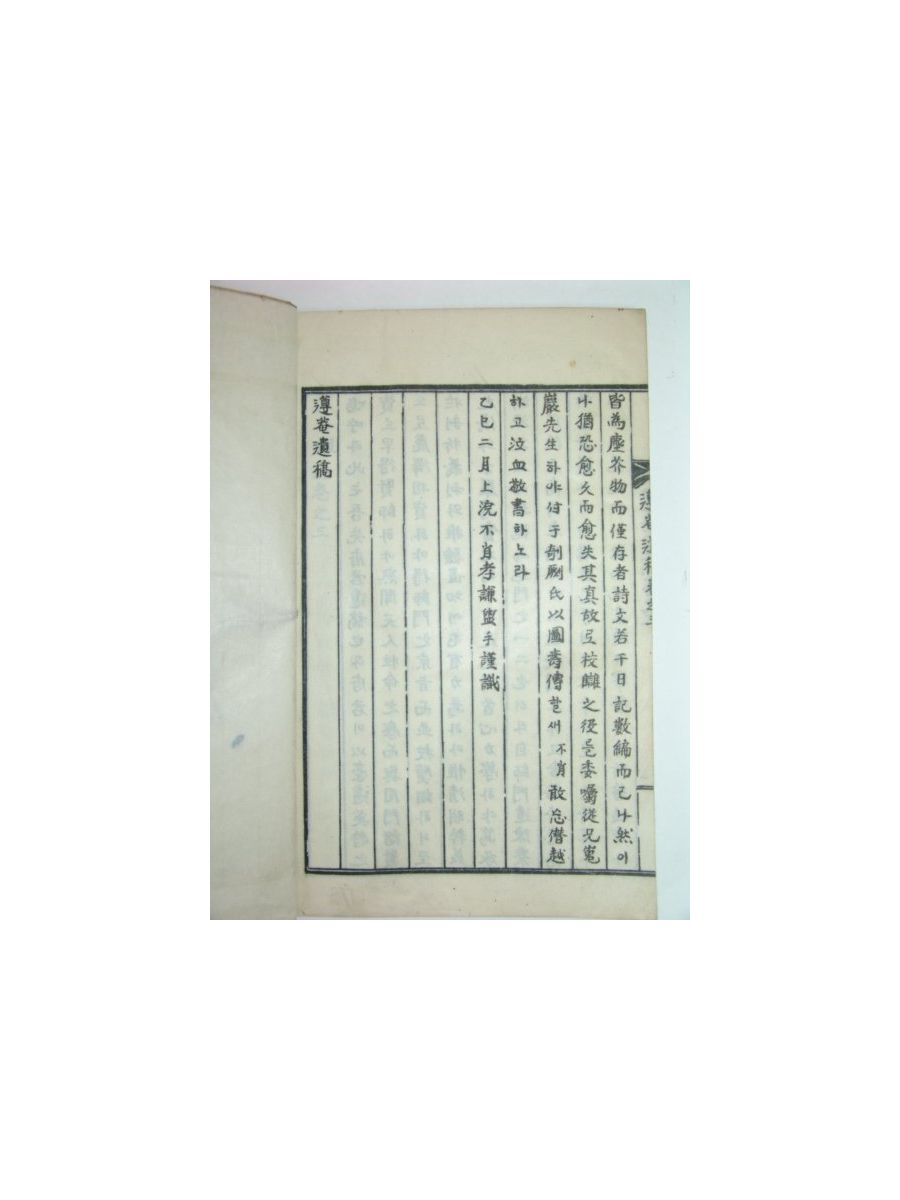 遵菴遺稿卷之三
皆為塵芥物而僅存者詩文若干日記數編而已나然이
나猶恐愈久而愈失其真故로校讎之役을委囑從兄嵬
巖先生하야付于剞劂氏以圖壽傳할새不肖敢忘僭越
하고泣血敬書하노라
乙巳二月上浣不肖孝謙盥手謹識
遵菴遺稿